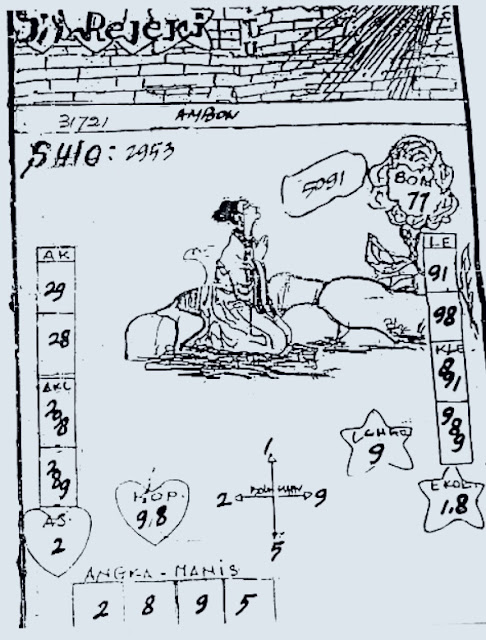 Rejeki
31721
AMBON
SHIO: 2953
5091
BOM
77
AK
29
28
AKL
208
289
AS
2
KOP
9,8
1
2
9
5
LE
91
98
KLE
891
989
9
EKOR
1,8
ANGKA-MANIS
2 8 9 5